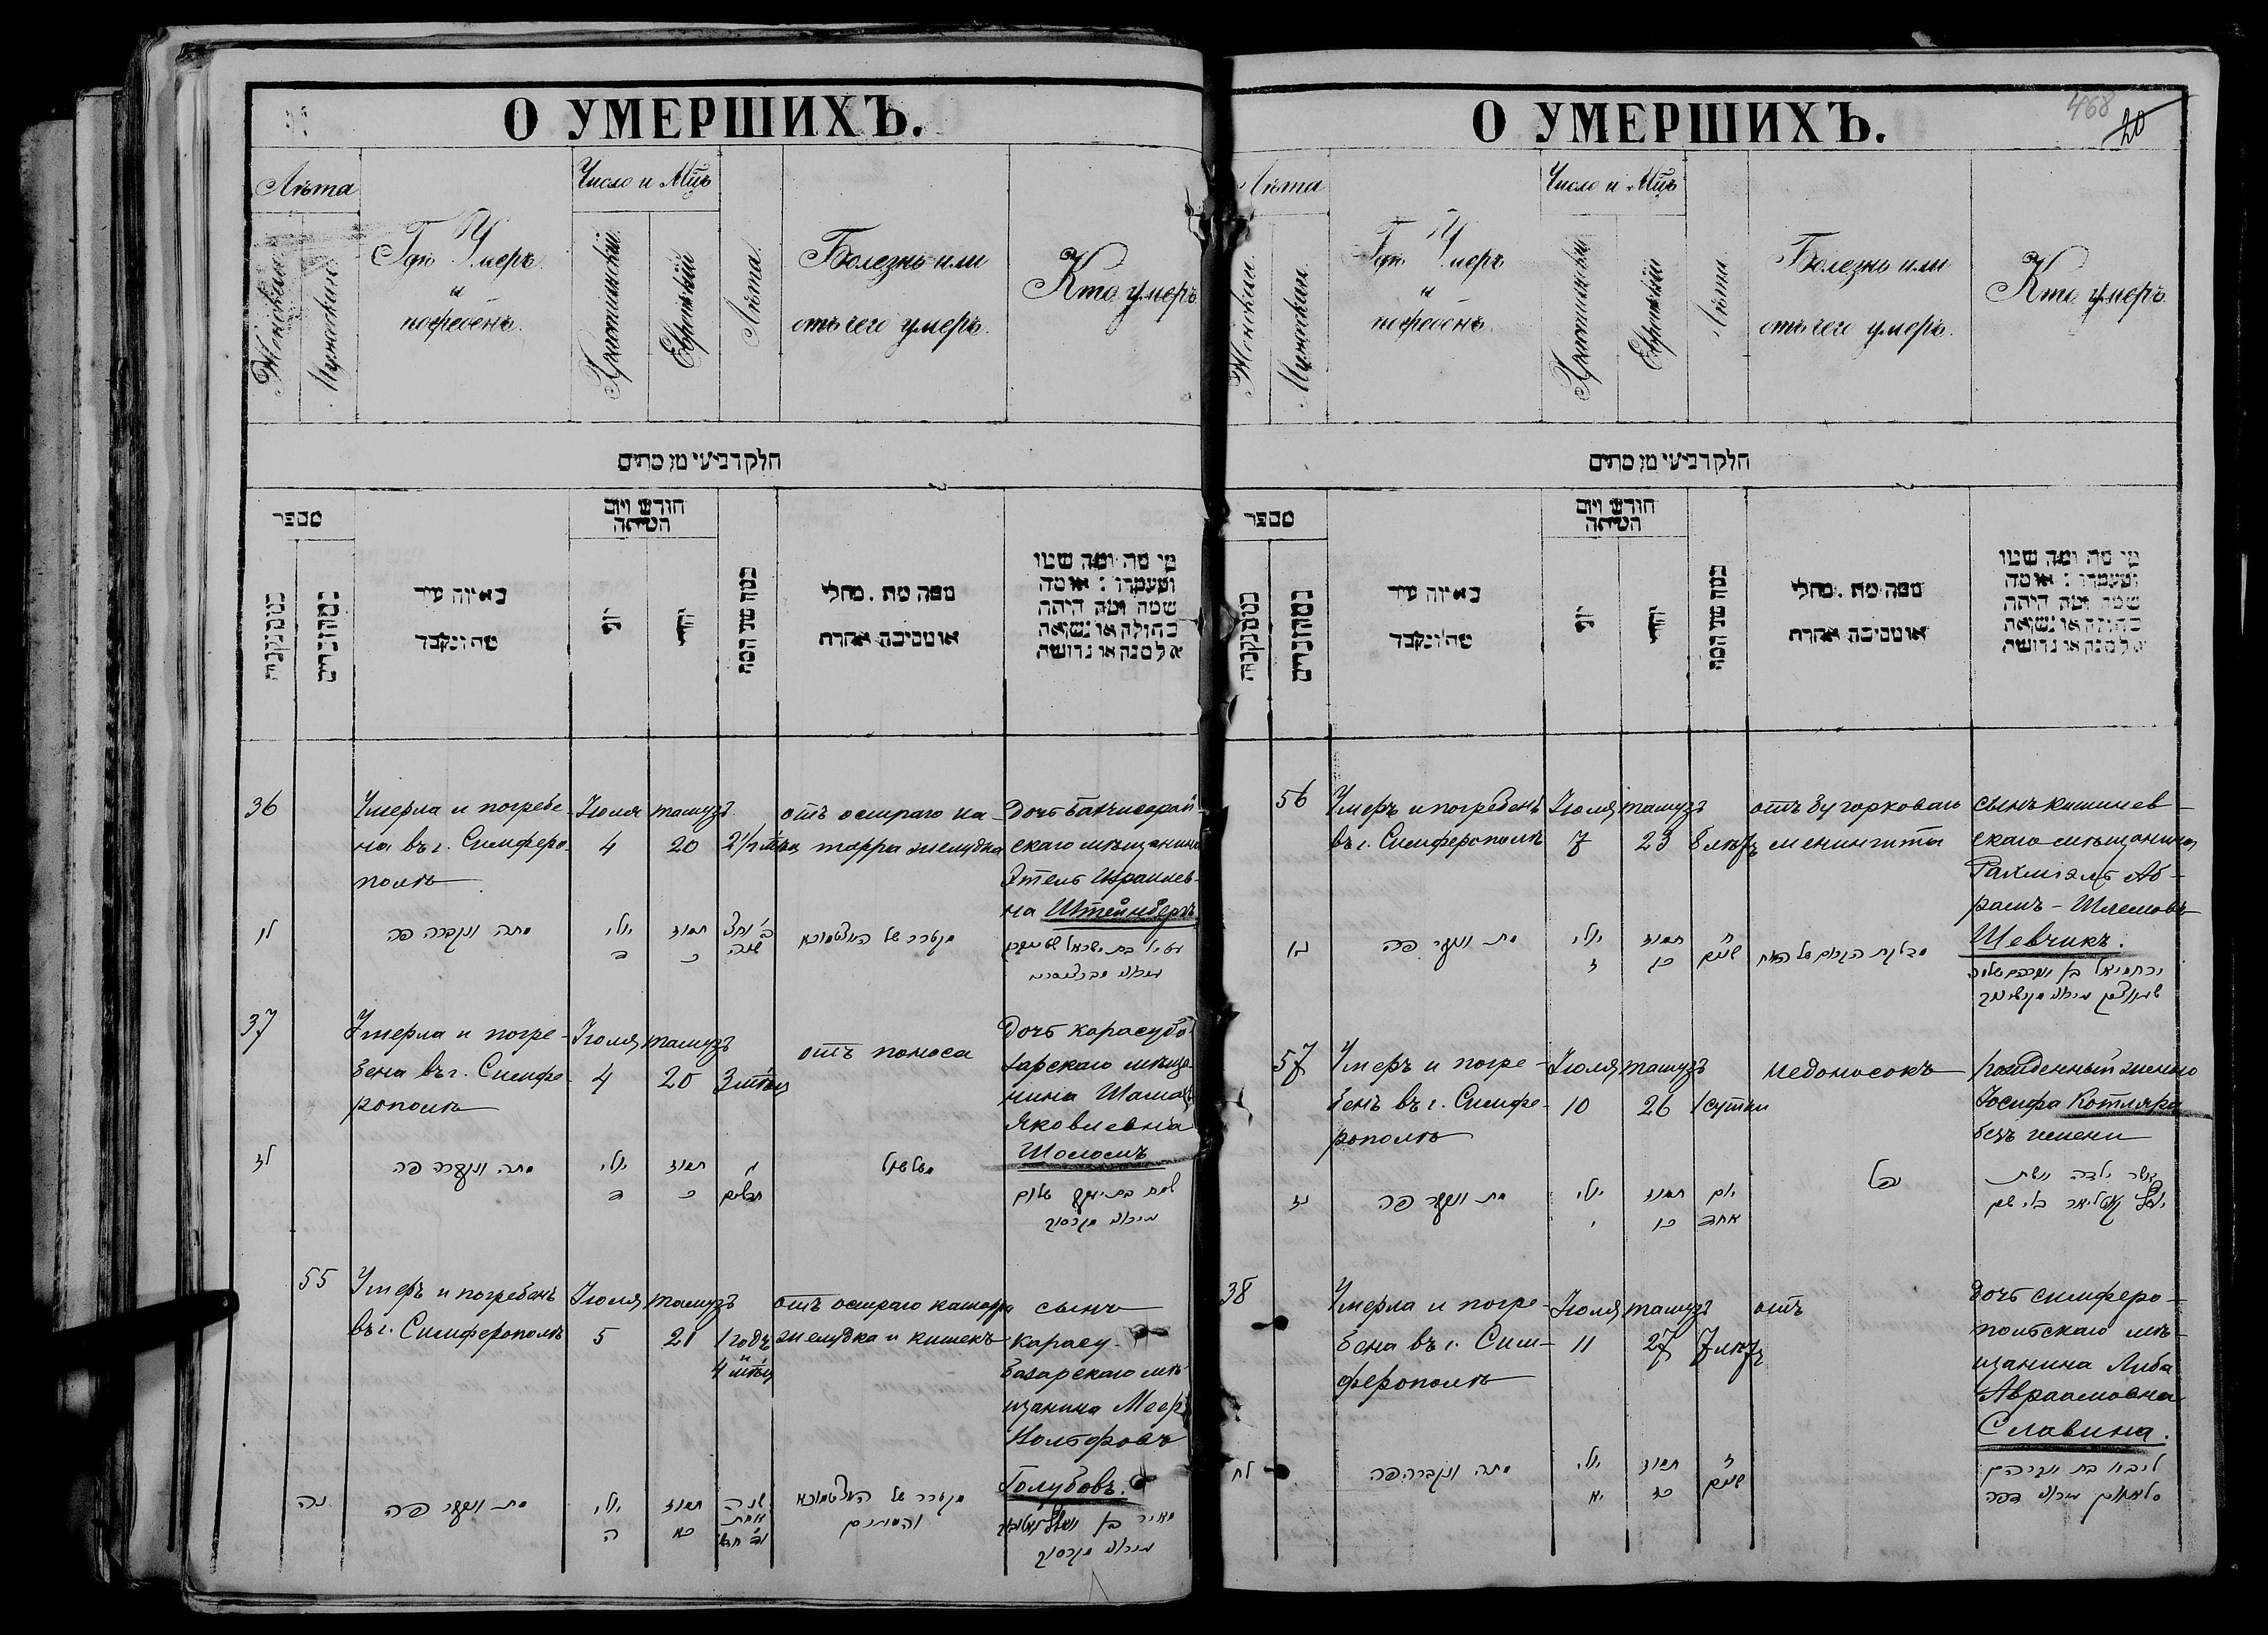 О УМЕРШИХЪ.
Лѣта
Женскихъ
Мужескихъ
Гдѣ Умеръ
и
погребенъ.
Число и Мцъ
Христіанскій
Еврейскій
Лѣта.
Болезнь или
отъ чего умеръ.
Кто умеръ
חלק רביעי מן מתים
מספר
באיזה עיר
מת ונקבר
חודש ויום
המיתה
ממה מת . מחלי
או מסיבה אחרת
מי מת ומה שמו
ומעמדו : או מה
שמה ומה היתה
בתולה או נשואה
אלמנה או גרושה
36
Умерла и погребе-
на въ г. Симферо-
полѣ
Іюля
4
тамузъ
20
отъ остраго ка-
тарра желудка
Дочь Бахчисарай-
скаго мѣщанина
Этель Израилев-
на Штейнбергъ
לו
מתה ונקברה פה
יולי
ד
תמוז
כ
37
Умерла и погре-
бена въ г. Симфе-
рополѣ
Іюля
4
тамузъ
20
3 мѣсяц
отъ поноса
Дочь карасуба-
зарскаго мѣща-
нина
Яковлевна
Шоломъ
לז
מתה ונקברה פה
יולי
ד
תמוז
כ
שלשול
55
Умеръ и погребенъ
въ г. Симферополѣ
Іюля
5
тамузъ
21
1 годъ
и
4 мѣсяц
отъ остраго катарра
желудка и кишекъ
сынъ
карасу-
базарскаго мѣ-
щанина Меер
Вольфовъ
Голубовъ.
נה
מת ונקבר פה
יולי
ה
תמוז
כא
שנה
אחת
О УМЕРШИХЪ.
468
20
Лѣта
Женскихъ
Мужескихъ
Гдѣ Умеръ
и
погребенъ.
Число и Мцъ
Христіанскій
Еврейскій
Лѣта
Болезнь или
отъ чего умеръ.
Кто умеръ.
חלק רביעי מן מתים
מספר
באיזה עיר
מת ונקבר
חודש ויום
המיתה
ממה מת . מחלי
או מסיבה אחרת
מי מת ומה שמו
ומעמדו : או מה
שמה ומה היתה
בתולה או נשואה
אלמנה או גרושה
56
Умеръ и погребенъ
въ г. Симферополѣ
Іюля
7
тамузъ
23
8 лѣтъ
отъ бугорковаго
менингита
сынъ кишинев-
скаго мѣщанина
Рахміэль Аб-
рамъ-Шлемовъ
Шевчикъ.
נו
מת ונקבר פה
יולי
ז
תמוז
כג
ח
שנים
57
Умеръ и погре-
бенъ въ г. Симфе-
рополѣ
Іюля
10
тамузъ
26
1 сутки
недоносокъ
рожденный женою
Іосифа Котляра
безъ имени
נז
מת ונקבר פה
יולי
י
תמוז
כו
יום
אחד
נפל
אשר ילדה אשת
יוסף קאטליאר בלי שם
38
Умерла и погре-
бена въ г. Сим-
ферополѣ
Іюля
11
тамузъ
27
7 лѣтъ
отъ
Дочь симферо-
польскаго мѣ-
щанина Либа
Авраамовна
Славина.
לח
מתה ונקברה פה
יולי
יא
תמוז
כז
ז
שנים
ליבא בת אברהם